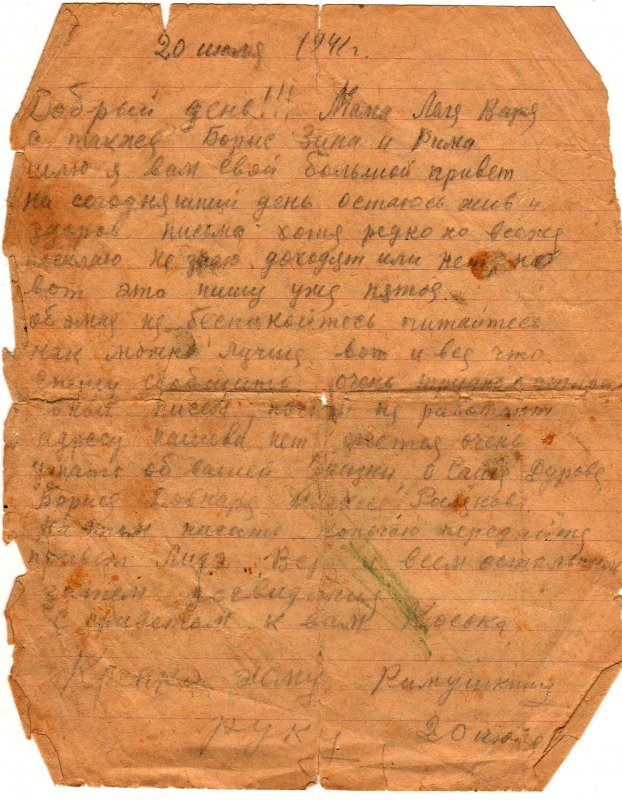 20 июля 1941 г.
Добрый день!!! Мама Варя
а также Борис Зина и Рима
шлю я вам свой большой привет
на сегодняшний день остаюсь жив и
здоров письма хотя редко но всеже
посылаю не знаю доходят или нет, но
вот это пишу уже пятое
обомне не беспакойтесь питайтесь
как можно лучше вот и все что
спешу сообщить очень трудно с
вкой писем не работают
адресу нашева нет очень
узнать об вашей жизни, о Дурове
Бориса
на этом писать передайте
привет Лиде Вере и всем остальным
затем досвидания
С приветом к вам Коська
Крепко жму Римушкину
руку 20 июля